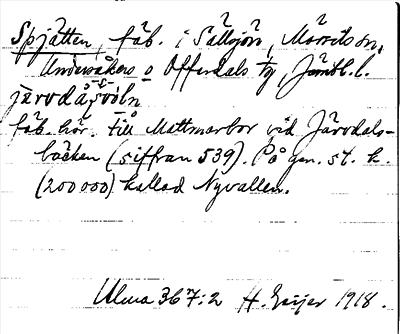 Spjätten, fäb. i Sällsjön, Mörsils sn,
Undersåkers o Offerdals tg, Jämtl. l.
järvdå-svöln
fäb. hör. till Mattmarbor vid Järvdals-
bäcken (siffran 539). På gen. st. k.
(200000) kallad Nyvallen.
Ulma 367:2 H. Geijer 1918.